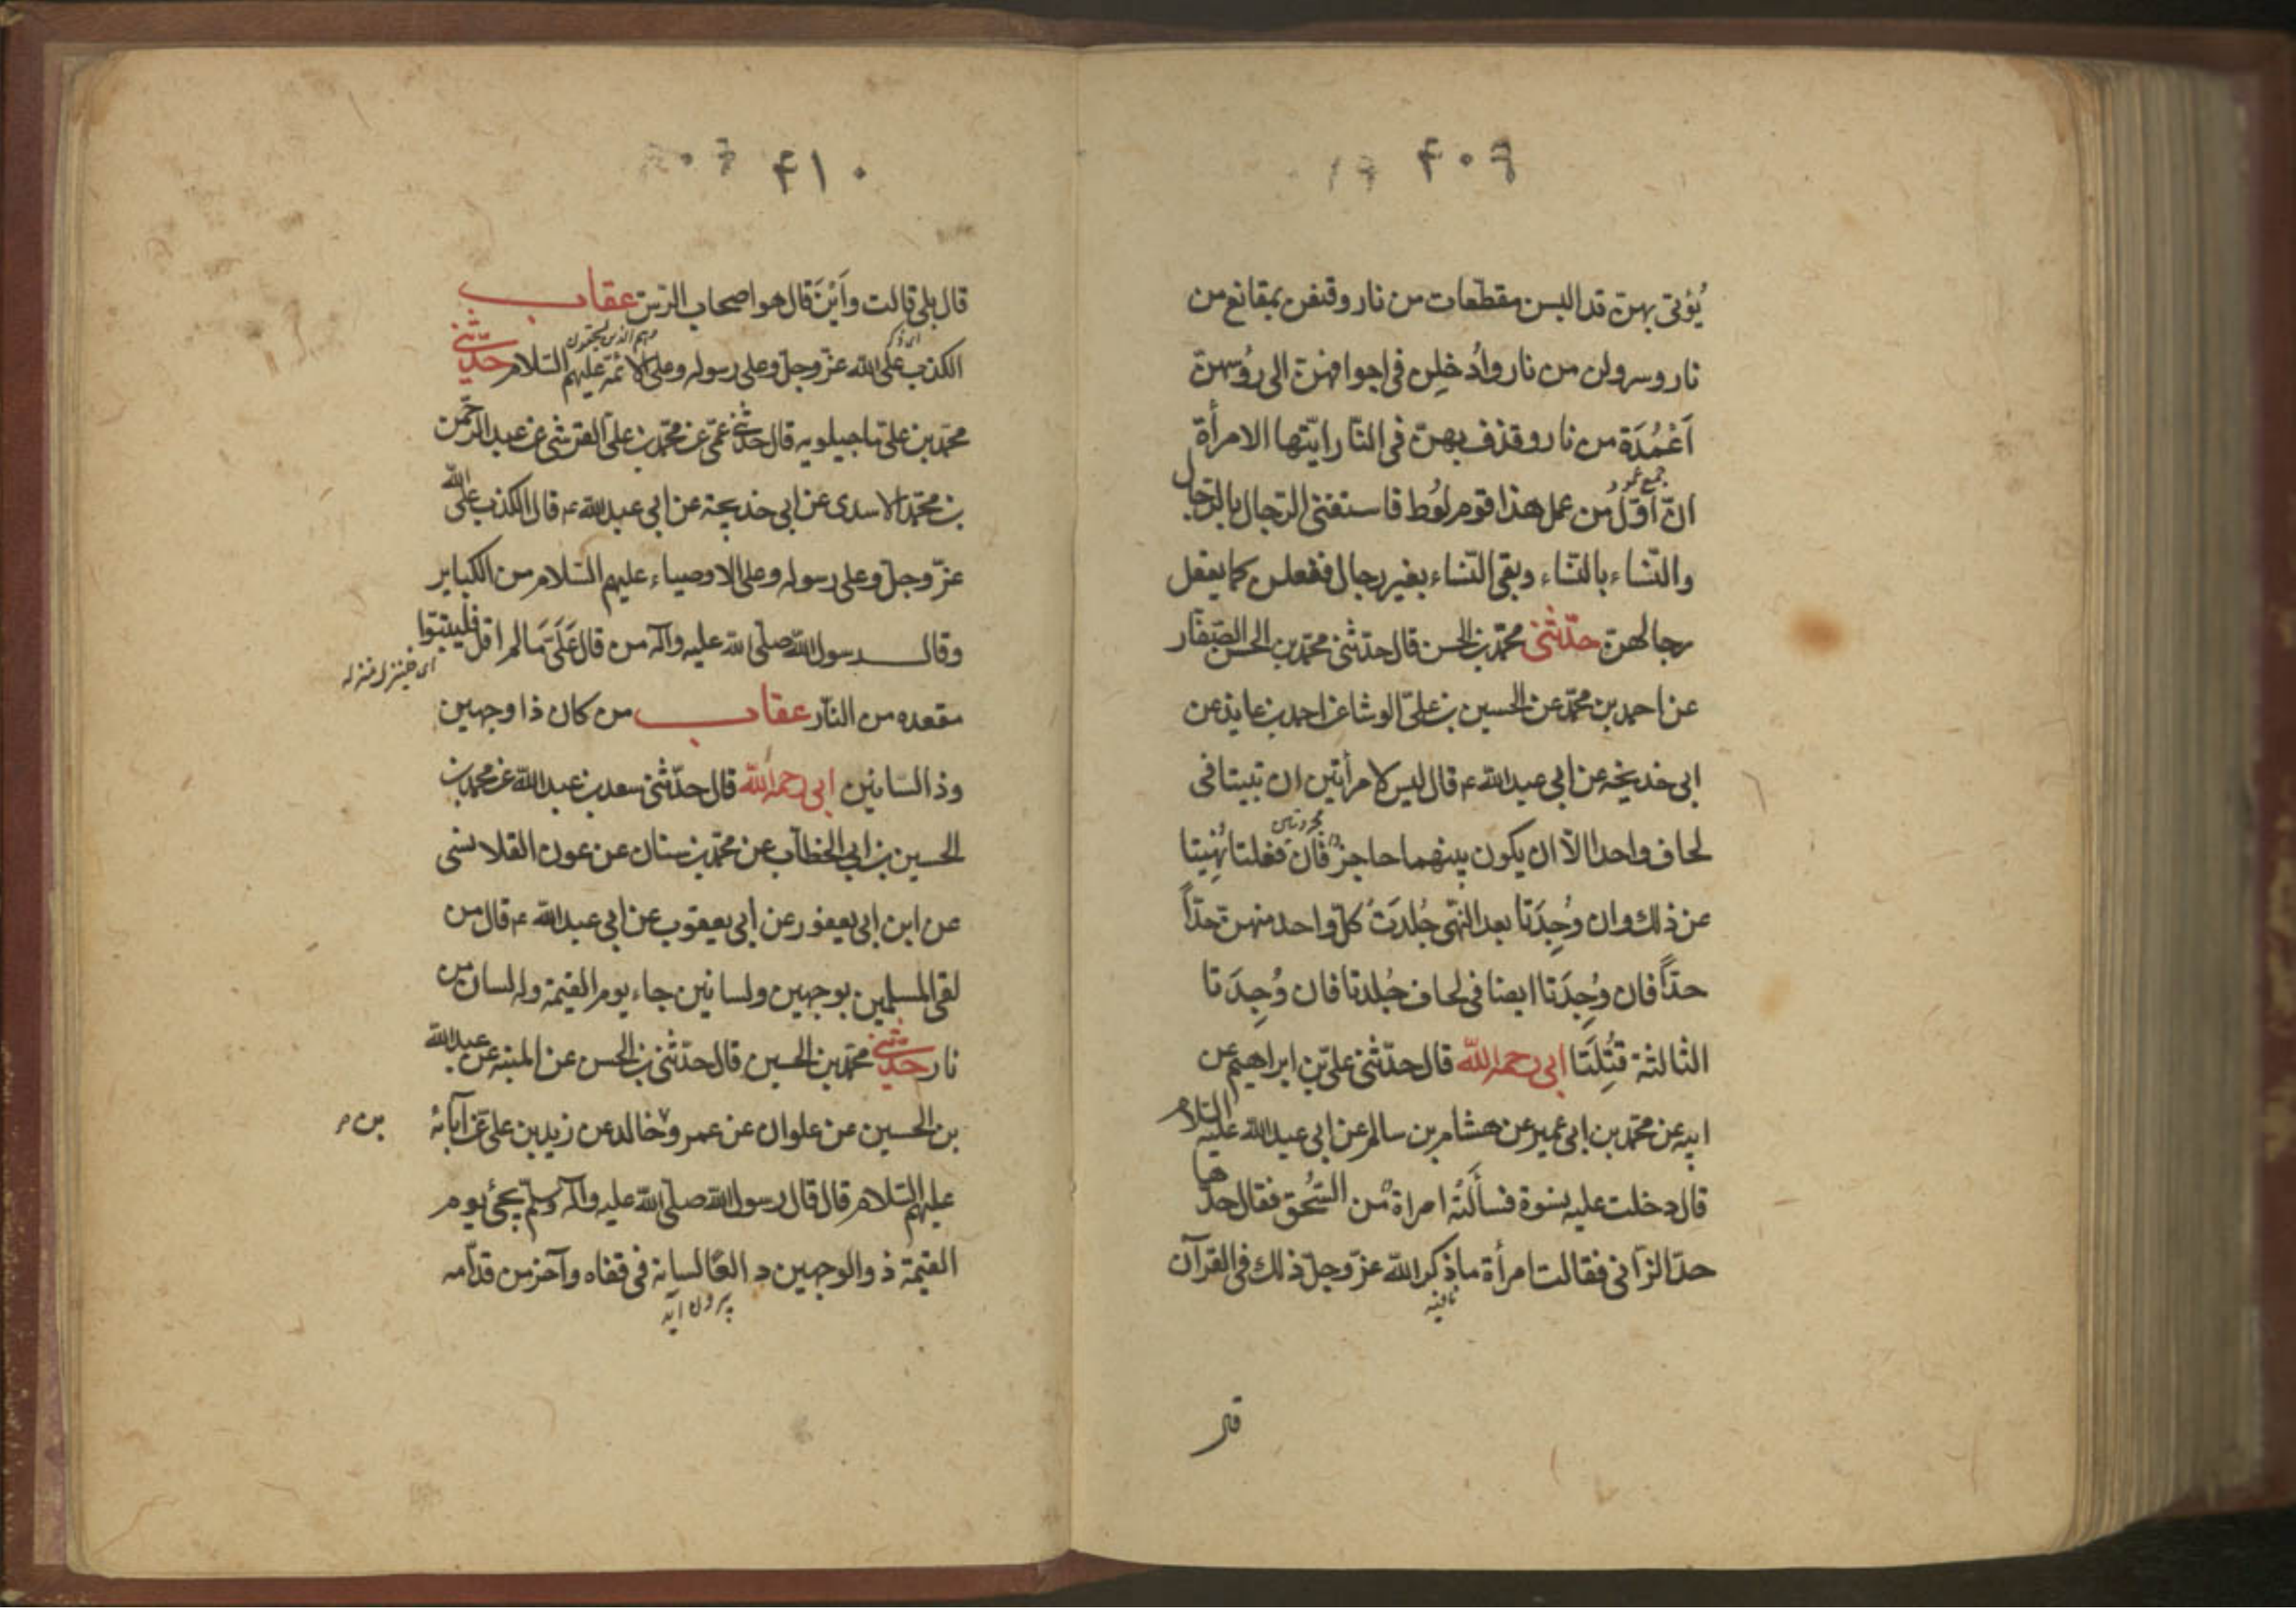 ۴۰۹
يُؤتى بهنّ قد البسن مقطعات من نار وقنفن بمقانع من
نار وسرولن من نار واُدخلِن فى اجوافهنّ الى رُؤسهنّ
اَعْمُدَة من نار وقذف بهنّ فى النّار ايّتها الامرأة
جمع عمود
انّ اوّل من عمل هذا قوم لوُط فاستغنى الرّجال بالرّجال
والنّساء بالنّساء وبقى النّساء بغير رجال ففعلن كما يفعل
رجالهنّ حدّثنى محمّد بن الحسن قال حدّثنى محمّد بن الحسن الصّفّار
عن احمد بن محمّد عن الحسين بن علىّ الوشا عن احمد بن عايذ عن
ابى خديجه عن ابى عبد الله ع قال ليس لامرأتين ان تبيتا فى
لحاف واحد الّا ان يكون بينهما حاجز فان فعلتا نُهِيتا
عن ذلك وان وُجِدَتا بعد النّهى جُلِدَتْ كلّ واحد منهنّ حدّاً
حدّاً فان وُجِدَتا ايضا فى لحاف جُلدتا فان وُجِدَتا
الثّالثة قُتِلَتا ابى رحمه الله قال حدّثنى علىّ بن ابراهيم عن
ابيه عن محمّد بن ابى عمير عن هشام بن سالم عن ابى عبد الله عليه السّلام
قال دخلت عليه نسوة فسألَتْه امراة من السُّحق فقال حدّها
حدّ الزّانى فقالت امرأة ما ذكر الله عزّ وجلّ ذلك فى القرآن
نافيه
قال
۴۱۰
قال بلى قالت واَيْنَ قال هو اصحاب الرّسّ عقاب
الكذب على الله عزّ وجلّ وعلى رسوله وعلى الائمّه عليهم السّلام حدّثنى
محمّد بن علىّ ماجيلويه قال حدّثنى عمّى عن محمّد بن علىّ القرشى عن عبد الرّحمن
بن محمّد الاسدى عن ابى خديجة عن ابى عبد الله ع قال الكذب على الله
عزّ وجلّ وعلى رسوله وعلى الاوصياء عليهم السّلام من الكباير
وقال رسول الله صلّى الله عليه وآله من قال عَلَىَّ مَا لم اقل فليتبوّا
مقعده من النّار عقاب من كان ذا وجهين
وذا لسانين ابى رحمه الله قال حدّثنى سعد بن عبد الله عن محمد بن
الحسين بن ابى الخطّاب عن محمّد بن سنان عن عون القلانسى
عن ابن ابى يعفور عن ابى يعقوب عن ابى عبد الله ع قال من
لقى المسلمين بوجهين ولسانين جاء يوم القيمة وله لسان من
نار حدّثنى محمّد بن الحسين قال حدّثنى بن الحسن عن المنبه عن عبد الله
بن الحسين عن علوان عن عمرو خالد عن زيد بن علىّ عن آبائه
بن م
عليهم السّلام قال قال رسول الله صلّى الله عليه وآله وسلّم يجئ يوم
القيمة ذو الوجهين دالعًا لسانه فى قفاه وآخر من قدّامه